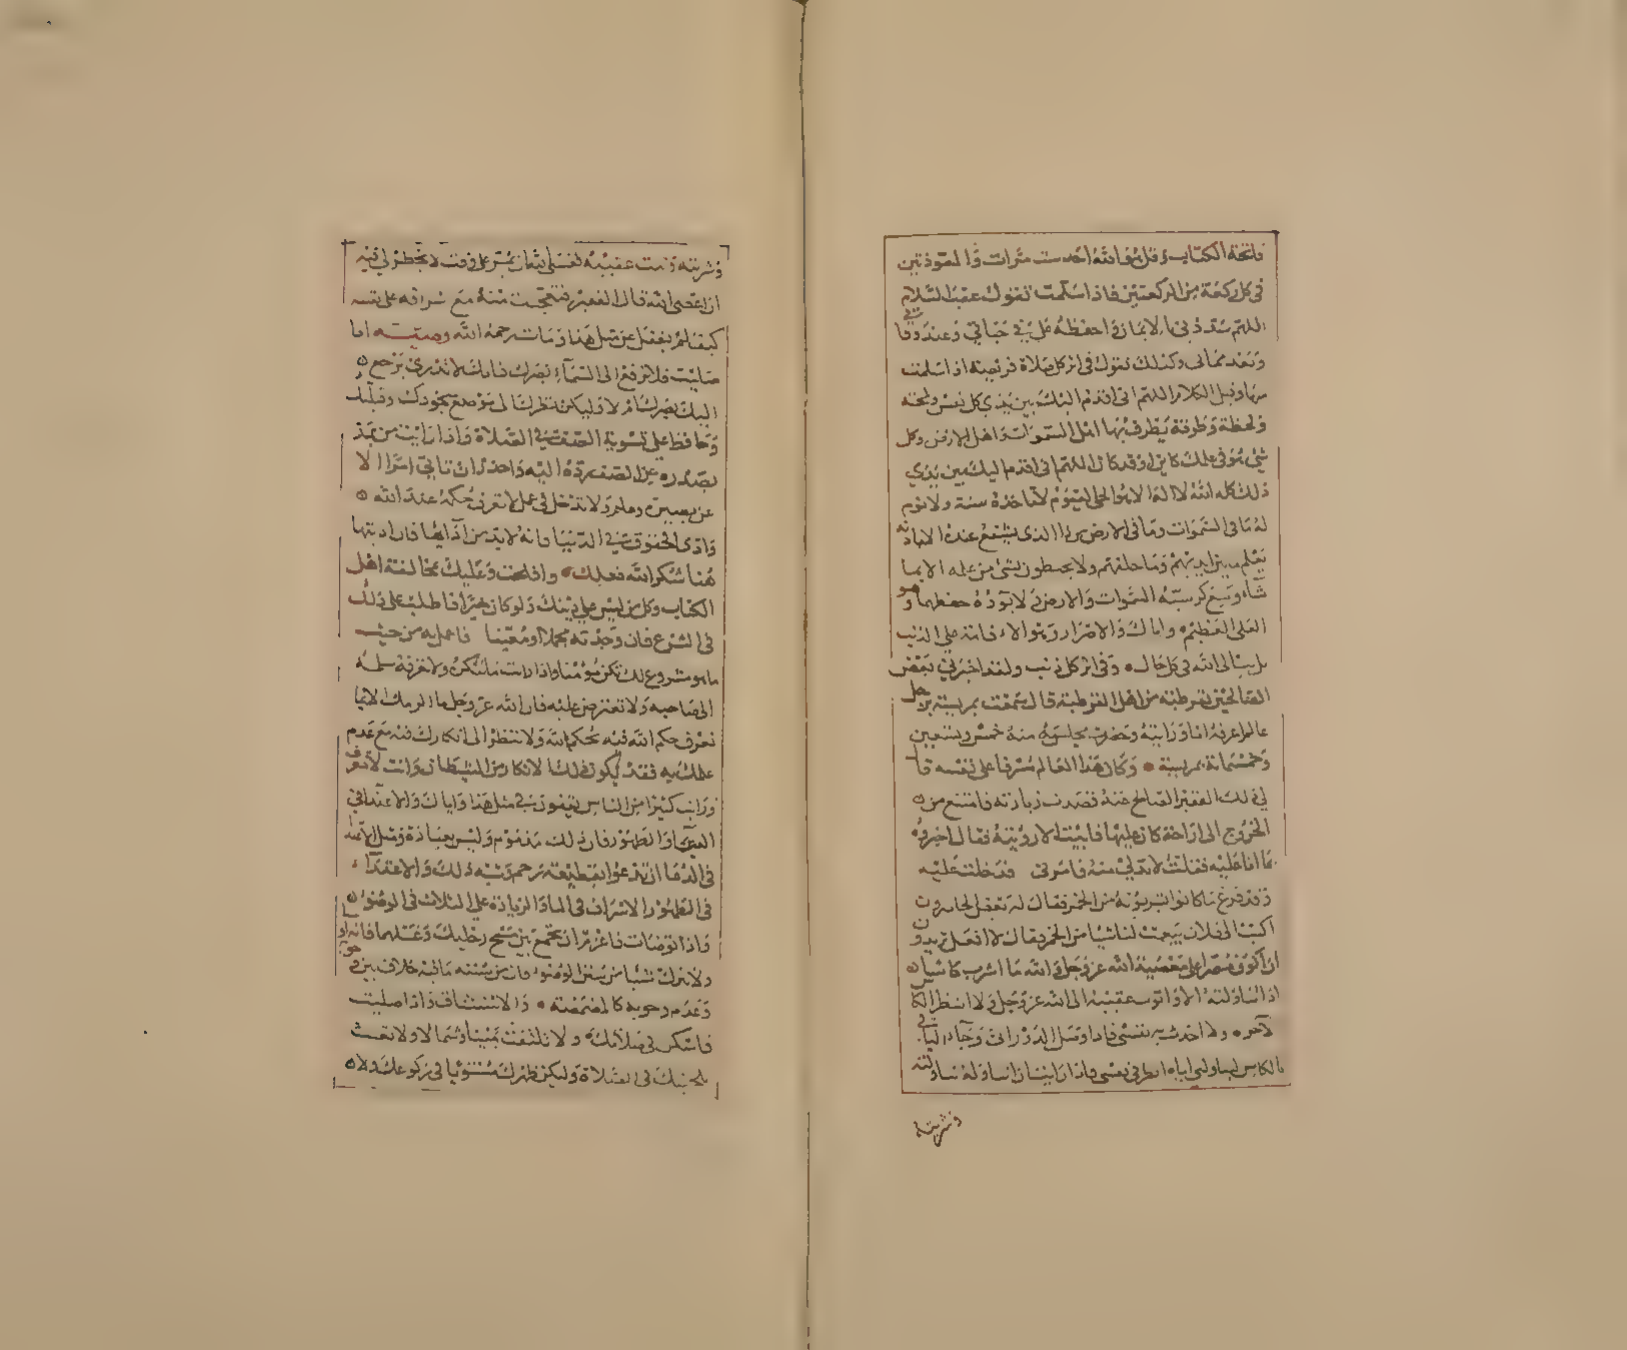 فاتحة الكتاب وقل هو الله احد ست مرات والمعوذتين
في كل ركعة من الركعتين فاذا سلمت تقول عقب السلام
اللهم سددني بالايمان واحفظه علي في حياتي وعند وفاتي
وبعد مماتي وكذلك تقول في اثر كل صلاة فريضة اذا سلمت
منها وقبل الكلام اللهم اني اقدم اليك بين يدي كل نفس ولمحة
ولحظة وطرفة يطرف بها اهل السموات واهل الارض وكل
شي هو في علمك كاين او قد كان اللهم اني اقدم اليك بين يدي
ذلك كله الله لا اله الا هو الحي القيوم لا تاخذه سنة ولا نوم
له ما في السموات وما في الارض من ذا الذي يشفع عنده الا باذنه
يعلم ما بين ايديهم وما خلفهم ولا يحيطون بشي من علمه الا بما
شاء وسع كرسيه السموات والارض ولا يؤده حفظهما وهو
العلي العظيم واياك والاصرار وهو الاقامة على الذنب
بل تب الى الله في كل حال وفي اثر كل ذنب ولقد اخبرني بعض
الصالحين بقرطبة من اهل القرطبة قال سمعت بمرسية رجل
عالم اعرفه انا ورايته وحضرت مجلسه سنة خمس وتسعين
وخمسماية بمرسية وكان هذا العالم مسرفا على نفسه قال
لي ذلك الفقير الصالح عنه قصدت زيارته فامتنع من
الخروج الى لراحة كان عليها فابيت الا رؤيته فقال اخبروه
بما انا عليه فقلت لا بد لي منه فامر لي فدخلت عليه
وقد فرغ ما كانوا يشربونه من الخمر فقال له بعض الحاضرين
اكتب الى فلان يبعث لنا شيا من الخمر فقال لا افعل تريدون
ان اكون مصرا على معصية الله عز وجل والله ما اشرب كاسا
اذا تناولته الا واتوب عقيبه الى الله عز وجل ولا انتظر الكاس
الاخر ولا احدث به نفسي فاذا وصل الدور الي وجاء الساقي
بالكاس ليناولني اياه انظر في نفسي فاذا رايت ان اتناوله تناولته
وشربته
وشربته وتبت عقيبه لعسى الله ان يمن علي وقت لا يخطر لي فيه
ان اعصي الله قال الفقير فتعجبت منه مع اسرافه على نفسه
كيف لم يغفل عن مثل هذا ومات رحمه الله وصية اذا
صليت فلا ترفع الى السماء بصرك فانك لا تدري يرجع
اليك بصرك ام لا وليكن نظرك الى موضع سجودك وقبلتك
وحافظ على تسوية الصف في الصلاة واذا رايت من برز
بصدره عن الصف فرده اليه واحذر ان تاتي امرا الا
عن بصيرة وعلم ولا تدخل في عمل لا تعرف حكمه عند الله
وادى الحقوق في الدنيا فانه لا بد من اداها فان اديتها
هنا شكر الله فعلك وافلحت وعليك بمخالفة اهل
الكتاب وكل من ليس على دينك ولو كان خيرا فاطلب على ذلك
في الشرع فان وجدته مجملا او معينا فاعمل به من حيث
ما هو مشروع لك تكن مؤمنا واذا رايت ما تنكره ولا تعرفه سلمه
الى صاحبه ولا تعترض عليه فان الله عز وجل ما الزمك الا بما
تعرف حكم الله فيه فتحكم بحكم الله ولا تنظر الى انكارك فيه مع عدم
علمك به فقد يكون ذلك الانكار من الشيطان وانت لا تعرف
ورايت كثيرا من الناس يقعون في مثل هذا واياك والاعتدا في
الدعا والطهور فان ذلك مذموم وليس بعبادة ومثل الاعتدا
في الدعا ان تدعوا بقطيعة رحم وشبه ذلك والاعتدا
في الطهور الاسراف في الما والزيادة على الثلاث في الوضو
واذا توضات فاعزم ان تجمع بين مسح رجليك وغسلهما فانه اولى
ولا تترك شيا من سنن الوضو فان من سننه ما فيه خلاف بين وجوبه
وعدم وجوبه كالمضمضة والاستنشاق واذا صليت
فاسكن في صلاتك ولا تلتفت يمينا وشمالا ولا تعبث
بلحيتك في الصلاة وليكن ظهرك مستويا في ركوعك ولا